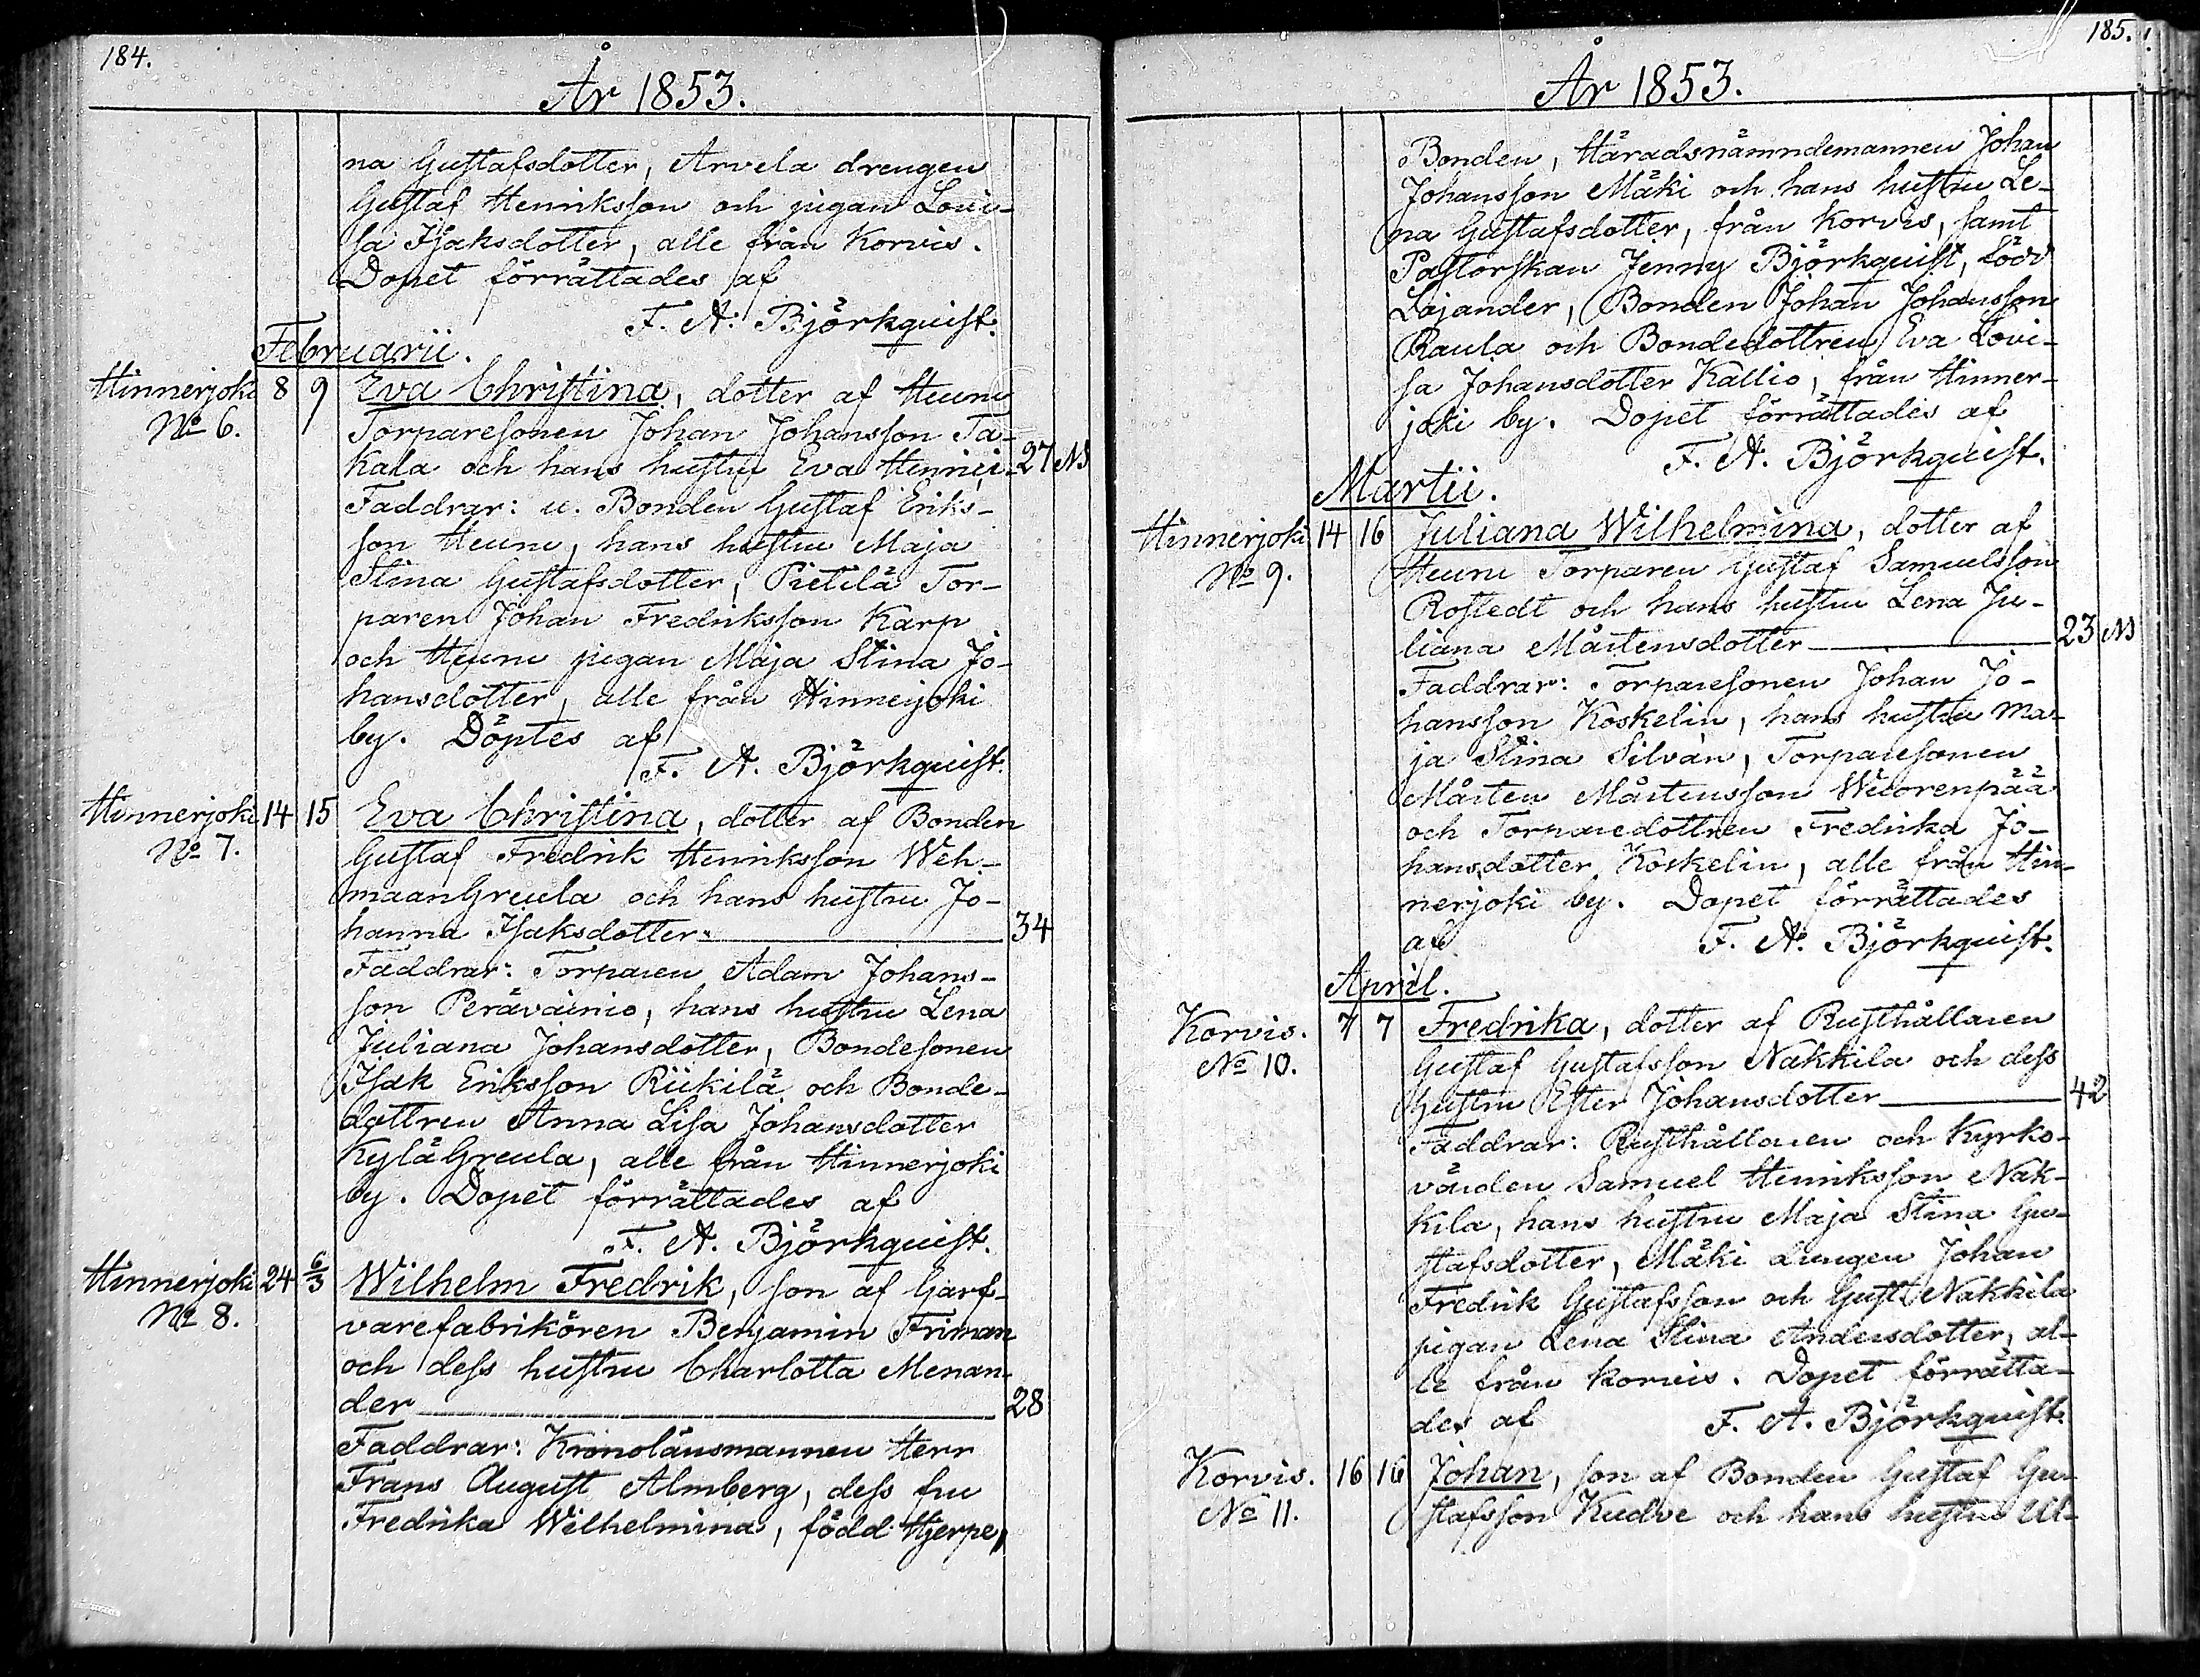 184.
År 1853.
na Gustafsdotter, Arvela drengen
Gustaf Henriksson och pigan Lovi-
sa Isaksdotter, alle från Korvis.
Dopet förrättades af
F. A. Björkquist.
Februarii.
Hinnerjoki 8 9 Eva Christina, dotter af Heunu
No 6. Torparesonen Johan Johansson Ta-
kala och hans hustru Eva Henrici 27 NB
Faddrar: u. Bonden Gustaf Eriks-
son Heunu, hans hustru Maja
Stina Gustafsdotter, Pietilä Tor-
paren Johan Fredriksson Karp
och Heunu pigan Maja Stina Jo-
hansdotter, alle från Hinnerjoki
by. Döptes af
F. A. Björkquist.
Hinnerjoki 14 15 Eva Christina, dotter af Bonden
No 7. Gustaf Fredrik Henriksson Weh-
maanGreula och hans hustru Jo-
hanna Isaksdotter 34
Faddrar: Torparen Adam Johans-
son Peräväinio, hans hustru Lena
Juliana Johansdotter, Bondesonen
Isak Eriksson Riikilä och Bonde-
dottren Anna Lisa Johansdotter
KyläGreula, alle från Hinnerjoki
by. Dopet förrättades af
F. A. Björkquist.
Hinnerjoki 24 6/3 Wilhelm Fredrik, son af Garf-
No 8. varefabrikören Benjamin Friman
och dess hustru Charlotta Menan-
der 28
Faddrar: Kronolänsmannen Herr
Frans August Almberg, dess fru
Fredrika Wilhelmina, född Hjerpe,
185.
År 1853.
Bonden, Häradsnämndemannen Johan
Johansson Mäki och hans hustru Le-
na Gustafsdotter, från Korvis, samt
Pastorskan Jenny Björkquist, född
Lajander, Bonden Johan Johansson
Raula och Bondedottren Eva Lovi-
sa Johansdotter Kallio, från Hinner-
joki by. Dopet förrättades af
F. A. Björkquist.
Martii.
Hinnerjoki 14 16 Juliana Wilhelmina, dotter af
No 9. Heunu Torparen Gustaf Samuelsson
Rostedt och hans hustru Lena Ju-
liana Mårtensdotter 23 NB
Faddrar: Torparesonen Johan Jo-
hansson Koskelin, hans hustru Ma-
ja Stina Silván, Torparesonen
Mårten Mårtensson Wuorenpää
och Torparedottren Fredrika Jo-
hansdotter Koskelin, alle från Hin-
nerjoki by. Dopet förrättades
af F. A. Björkquist.
April.
Korvis. 7 7 Fredrika, dotter af Rusthållaren
No 10. Gustaf Gustafsson Nakkila och dess
hustru Ester Johansdotter 42
Faddrar: Rusthållaren och Kyrko-
värden Samuel Henriksson Nak-
kila, hans hustru Maja Stina Gu-
stafsdotter, Mäki drengen Johan
Fredrik Gustafsson och Gust. Nakkila
pigan Lena Stina Andersdotter, al-
le från Korvis. Dopet förrätta-
des af F. A. Björkquist.
Korvis. 16 16 Johan, son af Bonden Gustaf Gu-
No 11. stafsson Kudve och hans hustru Ul-